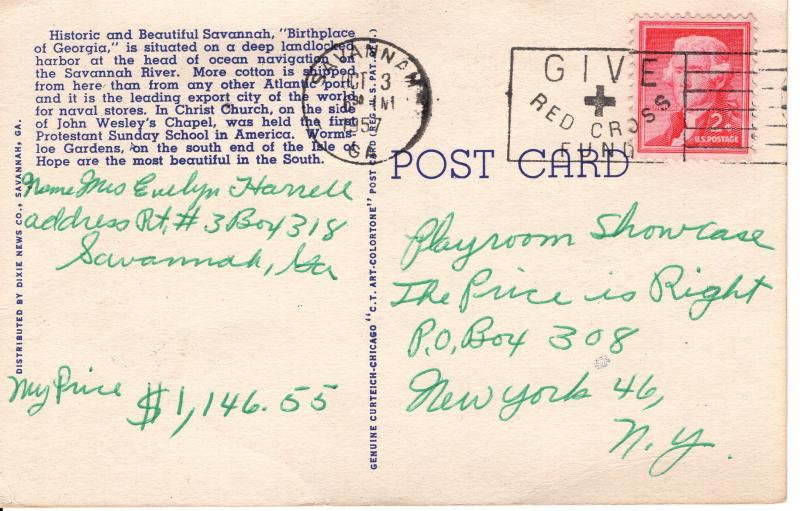 Historic and Beautiful Savannah, "Birthplace
of Georgia," is situated on a deep landlocked
harbor at the head of ocean navigation on
the Savannah River. More cotton is shipped
from here than from any other Atlantic port,
and it is the leading export city of the world
for naval stores. In Christ Church, on the side
of John Wesley's Chapel, was held the first
Protestant Sunday School in America. Worms-
loe Gardens, on the south end of the Isle of
Hope are the most beautiful in the South.
Name Mrs Evelyn Harrell
address Rt, # 3 Box 318
Savannah, Ga
My Price $1,146.55
DISTRIBUTED BY DIXIE NEWS CO., SAVANNAH, GA.
GENUINE CURTEICH-CHICAGO "C.T. ART-COLORTONE" POST CARD (REG. U.S. PAT. OFF.)
SAVANNAH
OCT 3
PM
1957
GA
GIVE
RED CROSS
FUND
2¢
U.S. POSTAGE
POST CARD
Playroom Showcase
The Price is Right
P.O. Box 308
New York 46,
N.Y.